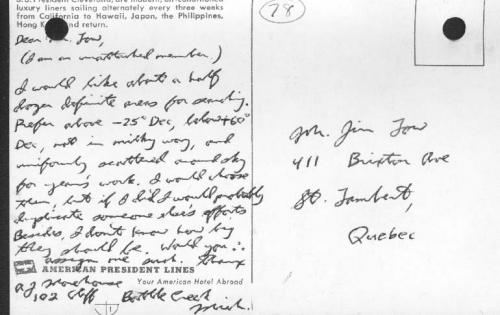 S.S. President Cleveland, are modern, air-conditioned
luxury liners sailing alternately every three weeks
from California to Hawaii, Japan, the Philippines,
Hong Kong and return.
Dear Mr. Low,
(I am an unattached member.)
I would like about a half
dozen definite areas for searching.
Prefer above -25° Dec, below +60°
Dec, not in milky way, and
uniformly scattered around sky
for year's work. I would choose
them, but if I did I would probably
duplicate someone else's efforts
Besides, I don't know how big
they should be. Would you ∴
assign me such. Thanx
AMERICAN PRESIDENT LINES
Your American Hotel Abroad
A J Morehouse
102 Cliff Battle Creek
Mich.
28
Mr. Jim Low
411 Brixton Ave
St. Lambert,
Quebec